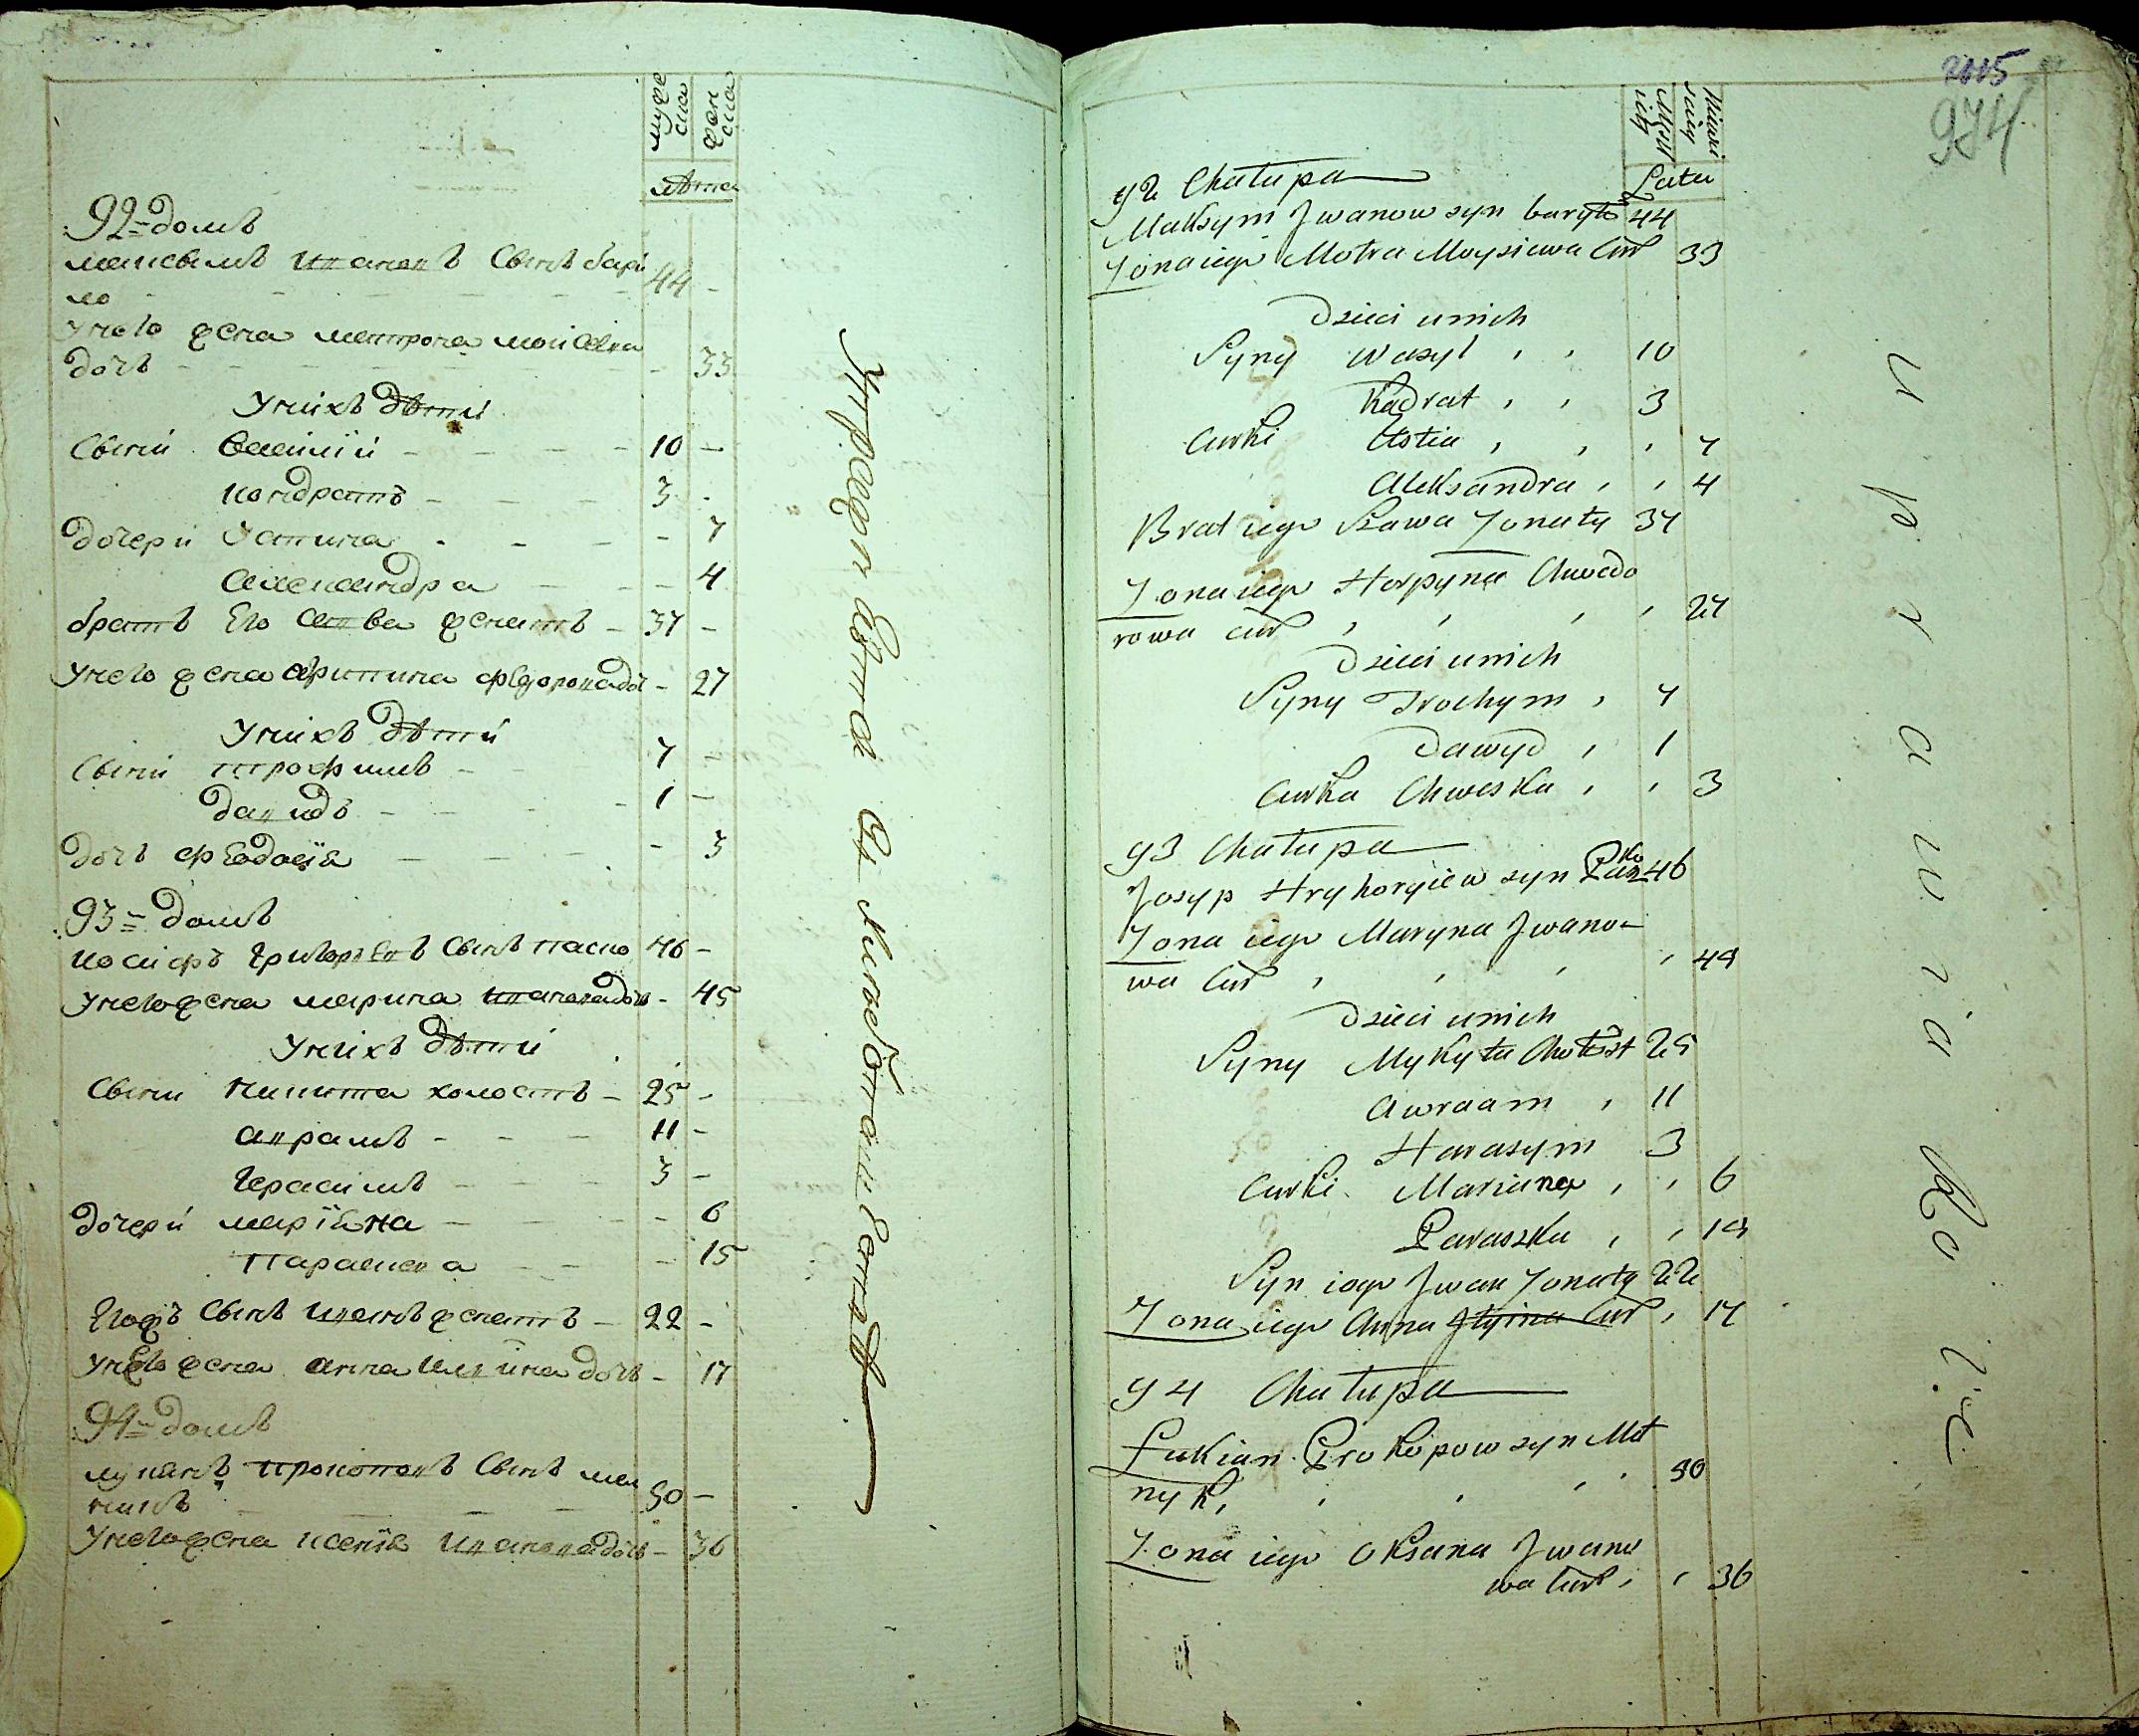 мужеска
женска
лѣта
92= домъ
максымъ Ивановъ Сынъ бари
ло 44
Унего жена матрона моисѣева
дочь 33
Унихъ дѣти
Сыни Василий 10
кондратъ 3
дочери Устина 7
Александра 4
братъ Его Савва женатъ 37
Унего жена Агрипина фЕдоровадоч 27
Унихъ дѣти
Сыни трофимъ 7
давидъ 1
дочь фЕодосія 3
93= домъ
иосифъ Григорьевъ Сынъ паско 46
Унего жена марина Ивановадоч 45
Унихъ дѣти
Сыни никита холостъ 25
аврамъ 11
Герасимъ 3
дочери маріяна 6
Параскева 15
Сынъ Иванъ женатъ 22
УнЕго жена анна дочь 17
94= домъ
лукянъ прокоповъ Сынъ мел
никъ 50
Унего жена ксенія Ивановадоч 36
2005
974
Męski
Żenski
Latu
92 Chatupa
Maksym Jwanow syn baryło 44
Żona iego Motra Moysiewa Cur 33
Dzieci unich
Syny Wasyl 10
Kądrat 3
Curki Ustia 7
Aleksandra 4
Brat iego Sława Żonaty 37
Żona iego Horpyna Chwedo
rowa cur 27
Dzieci unich
Syny Trochym 7
Dawyd 1
Curka Chweska 3
93 Chatupa
Josyp Hryhoryiew syn Pasko 46
Żona iego Maryna Jwano=
wa Cur 45
Dzieci unich
Syny Mykyta Chołost 25
Awraam 11
Harasym 3
Curki Mariana 6
Paraszka 15
Syn iego Jwan Żonaty 22
Żona iego Anna Jlyina Cur 17
94 Chatupa
Łukian Prokopow syn Mel
nyk 50
Żona iego Oksana Jwano
wa Cur 36